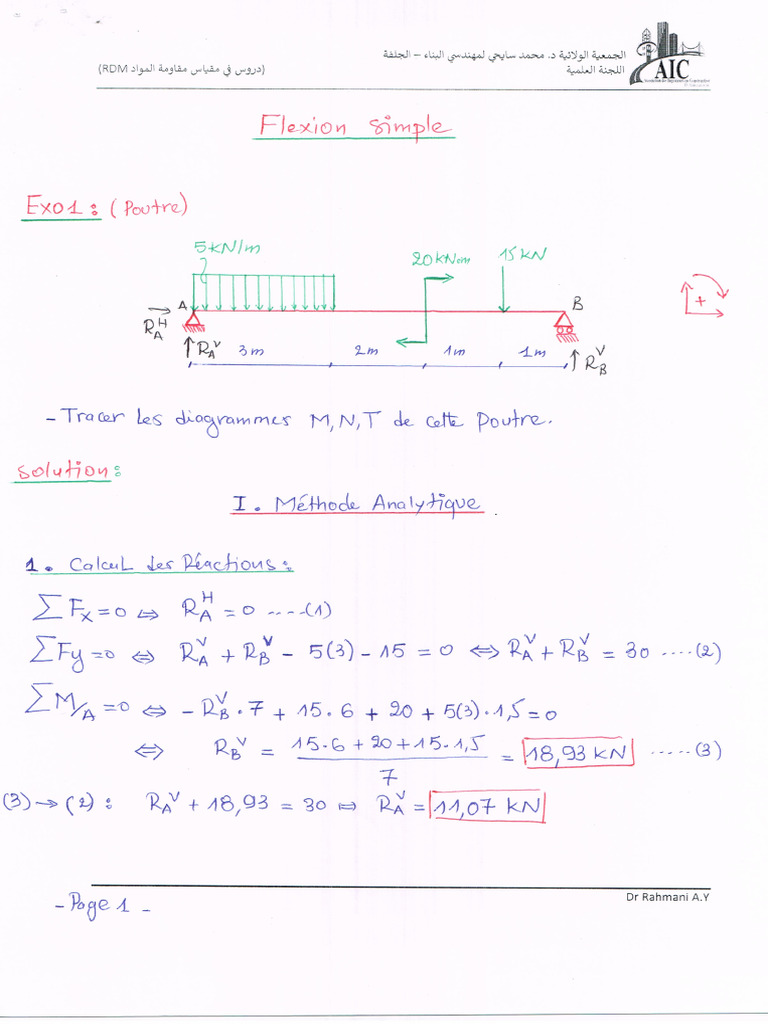 الجمعية الولائية د. محمد سايحي لمهندسي البناء – الجلفة
اللجنة العلمية
(دروس في مقياس مقاومة المواد RDM)
AIC
Flexion simple
Exo1: (Poutre)
5kN/m
20kN.m
15kN
A
B
+
R_A^H
R_A^V
3m
2m
1m
1m
R_B^V
- Tracer les diagrammes M, N, T de cette Poutre.
Solution:
I. Méthode Analytique.
1. Calcul des Réactions:
∑Fx=0 ⇔ R_A^H = 0 ....(1)
∑Fy=0 ⇔ R_A^V + R_B^V - 5(3) - 15 = 0 ⇔ R_A^V + R_B^V = 30 ....(2)
∑M/A=0 ⇔ - R_B^V . 7 + 15 . 6 + 20 + 5(3) . 1,5 = 0
⇔ R_B^V = (15.6 + 20 + 15.1,5)/7 = 18,93 KN .....(3)
(3) → (2) : R_A^V + 18,93 = 30 ⇔ R_A^V = 11,07 KN
Dr Rahmani A.Y
- Page 1 -